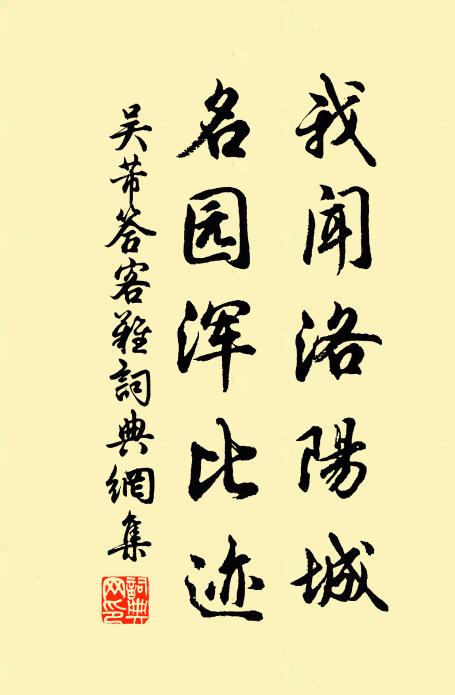 我闻洛陽城
名园浑比迹
吴芾答客難詞典網集
詞典网印